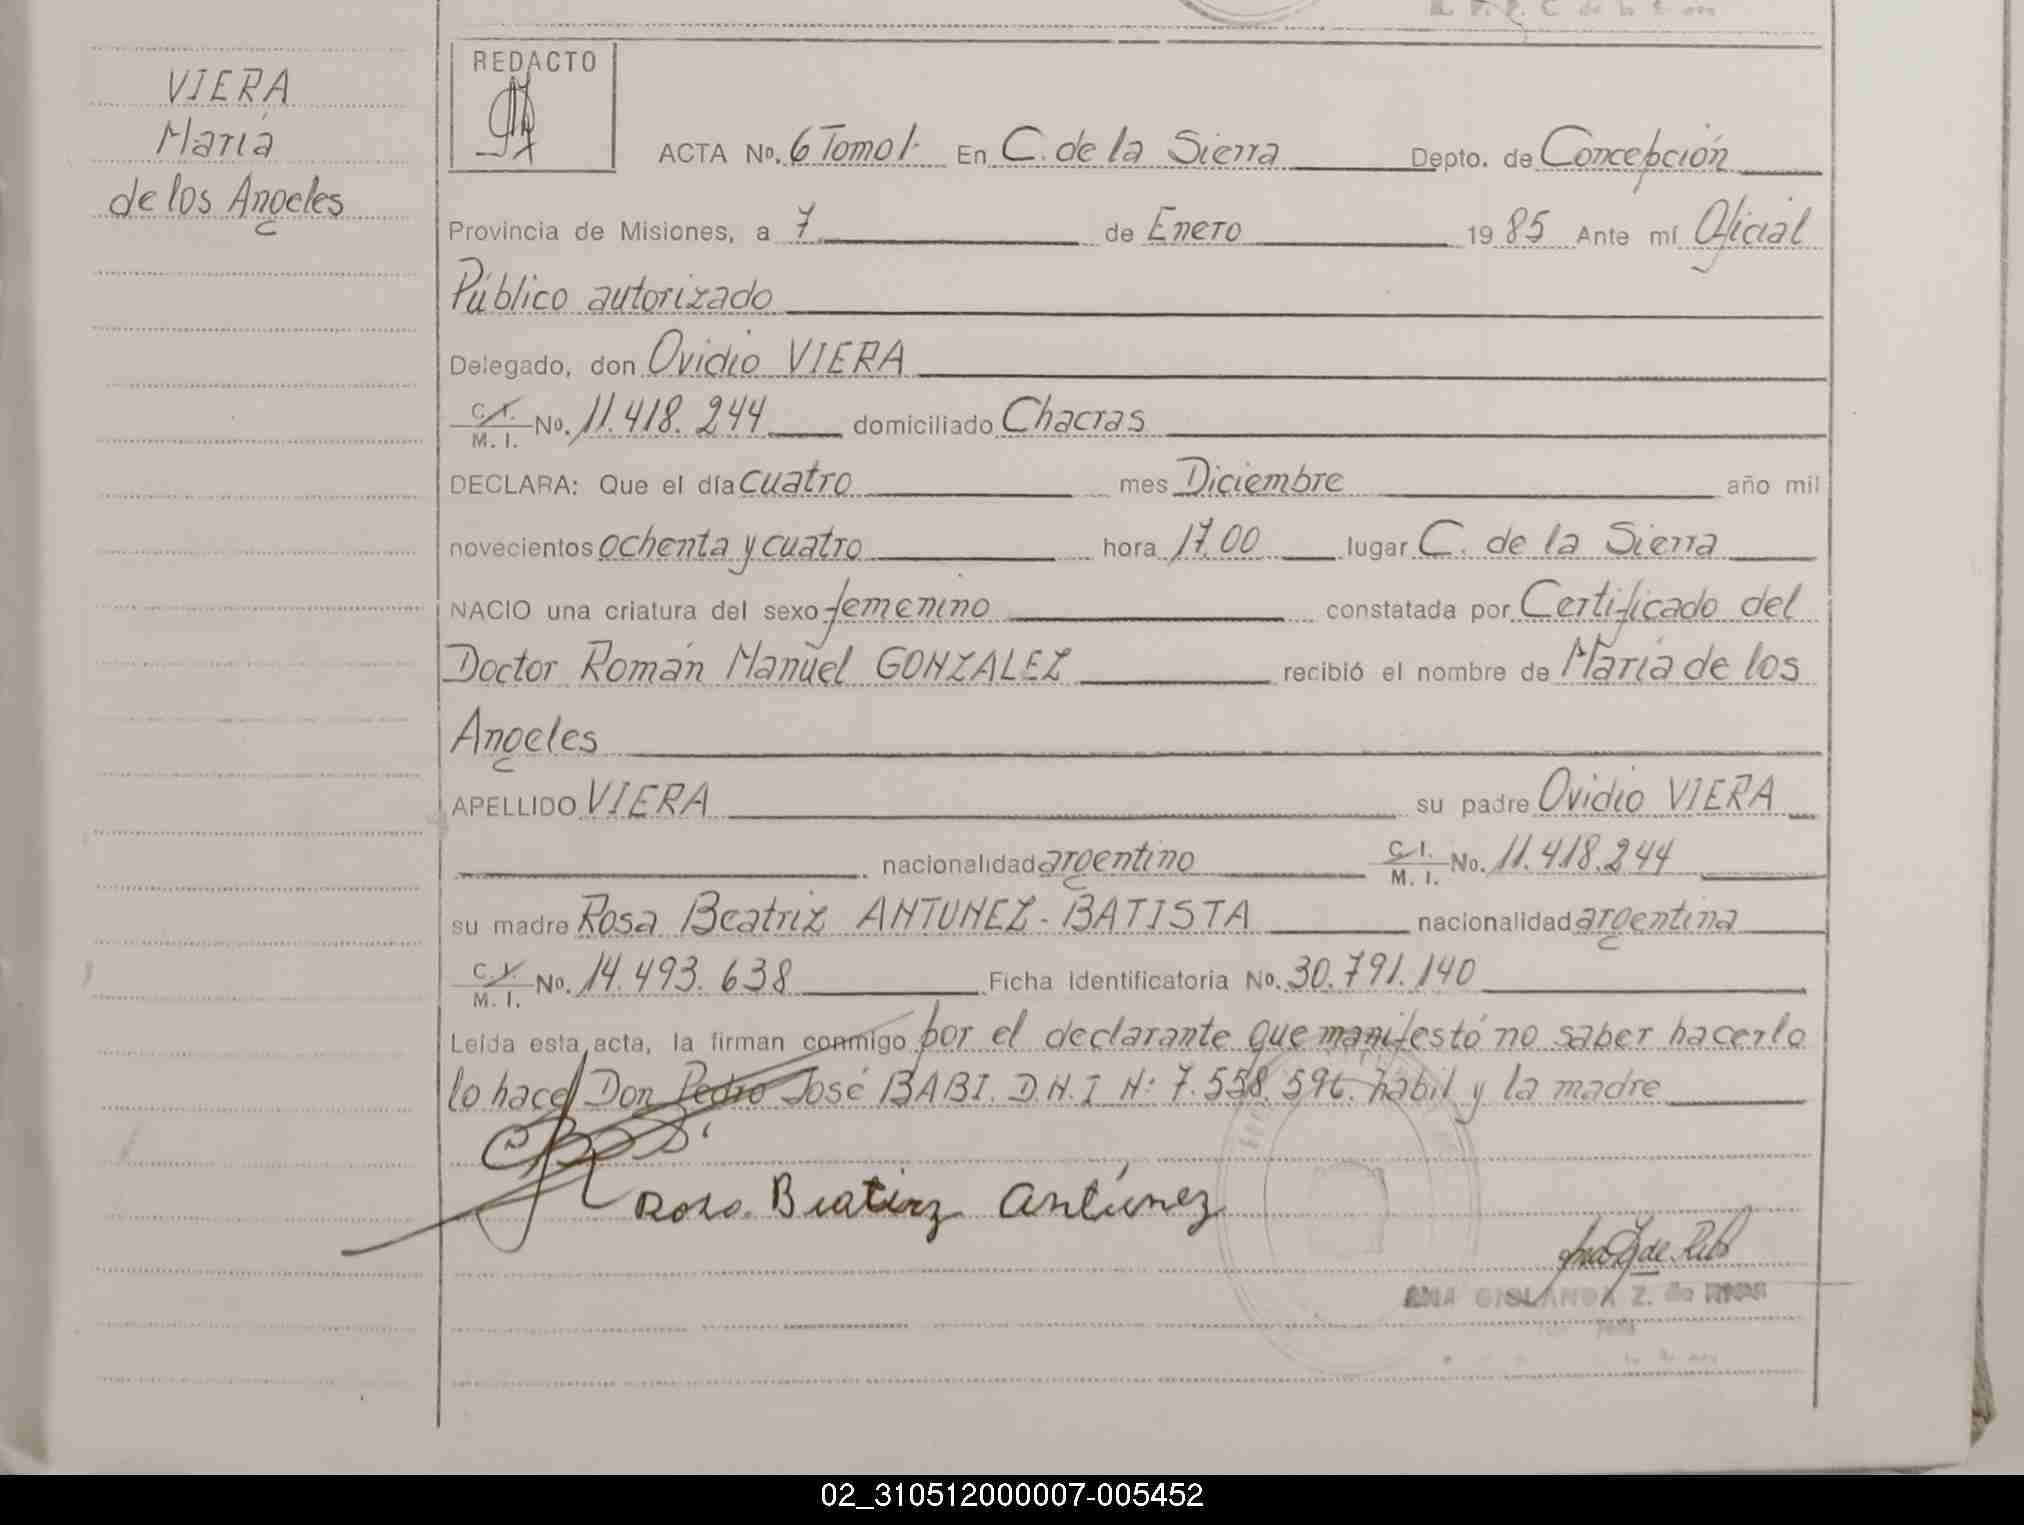 VIERA
María
de los Angeles
REDACTO
ACTA No. 6 Tomo I. En C. de la Sierra Depto. de Concepción
Provincia de Misiones, a 7 de Enero 19 85 Ante mí Oficial
Público autorizado
Delegado, don Ovidio VIERA
C. I. M. I. No. 11.418.244 domiciliado Chacras
DECLARA: Que el día cuatro mes Diciembre año mil
novecientos ochenta y cuatro hora 17.00 lugar C. de la Sierra
NACIO una criatura del sexo femenino constatada por Certificado del
Doctor Román Manuel GONZALEZ recibió el nombre de María de los
Angeles
APELLIDO VIERA su padre Ovidio VIERA
nacionalidad argentino C. I. M. I. No. 11.418.244
su madre Rosa Beatriz ANTUNEZ - BATISTA nacionalidad argentina
C. I. M. I. No. 14.493.638 Ficha Identificatoria No. 30.791.140
Leída esta acta, la firman conmigo por el declarante que manifestó no saber hacerlo
lo hace Don Pedro José BABI. D.N.I N: 7.558.596. habil y la madre
Rosa Beatirz Antúnez
02_310512000007-005452